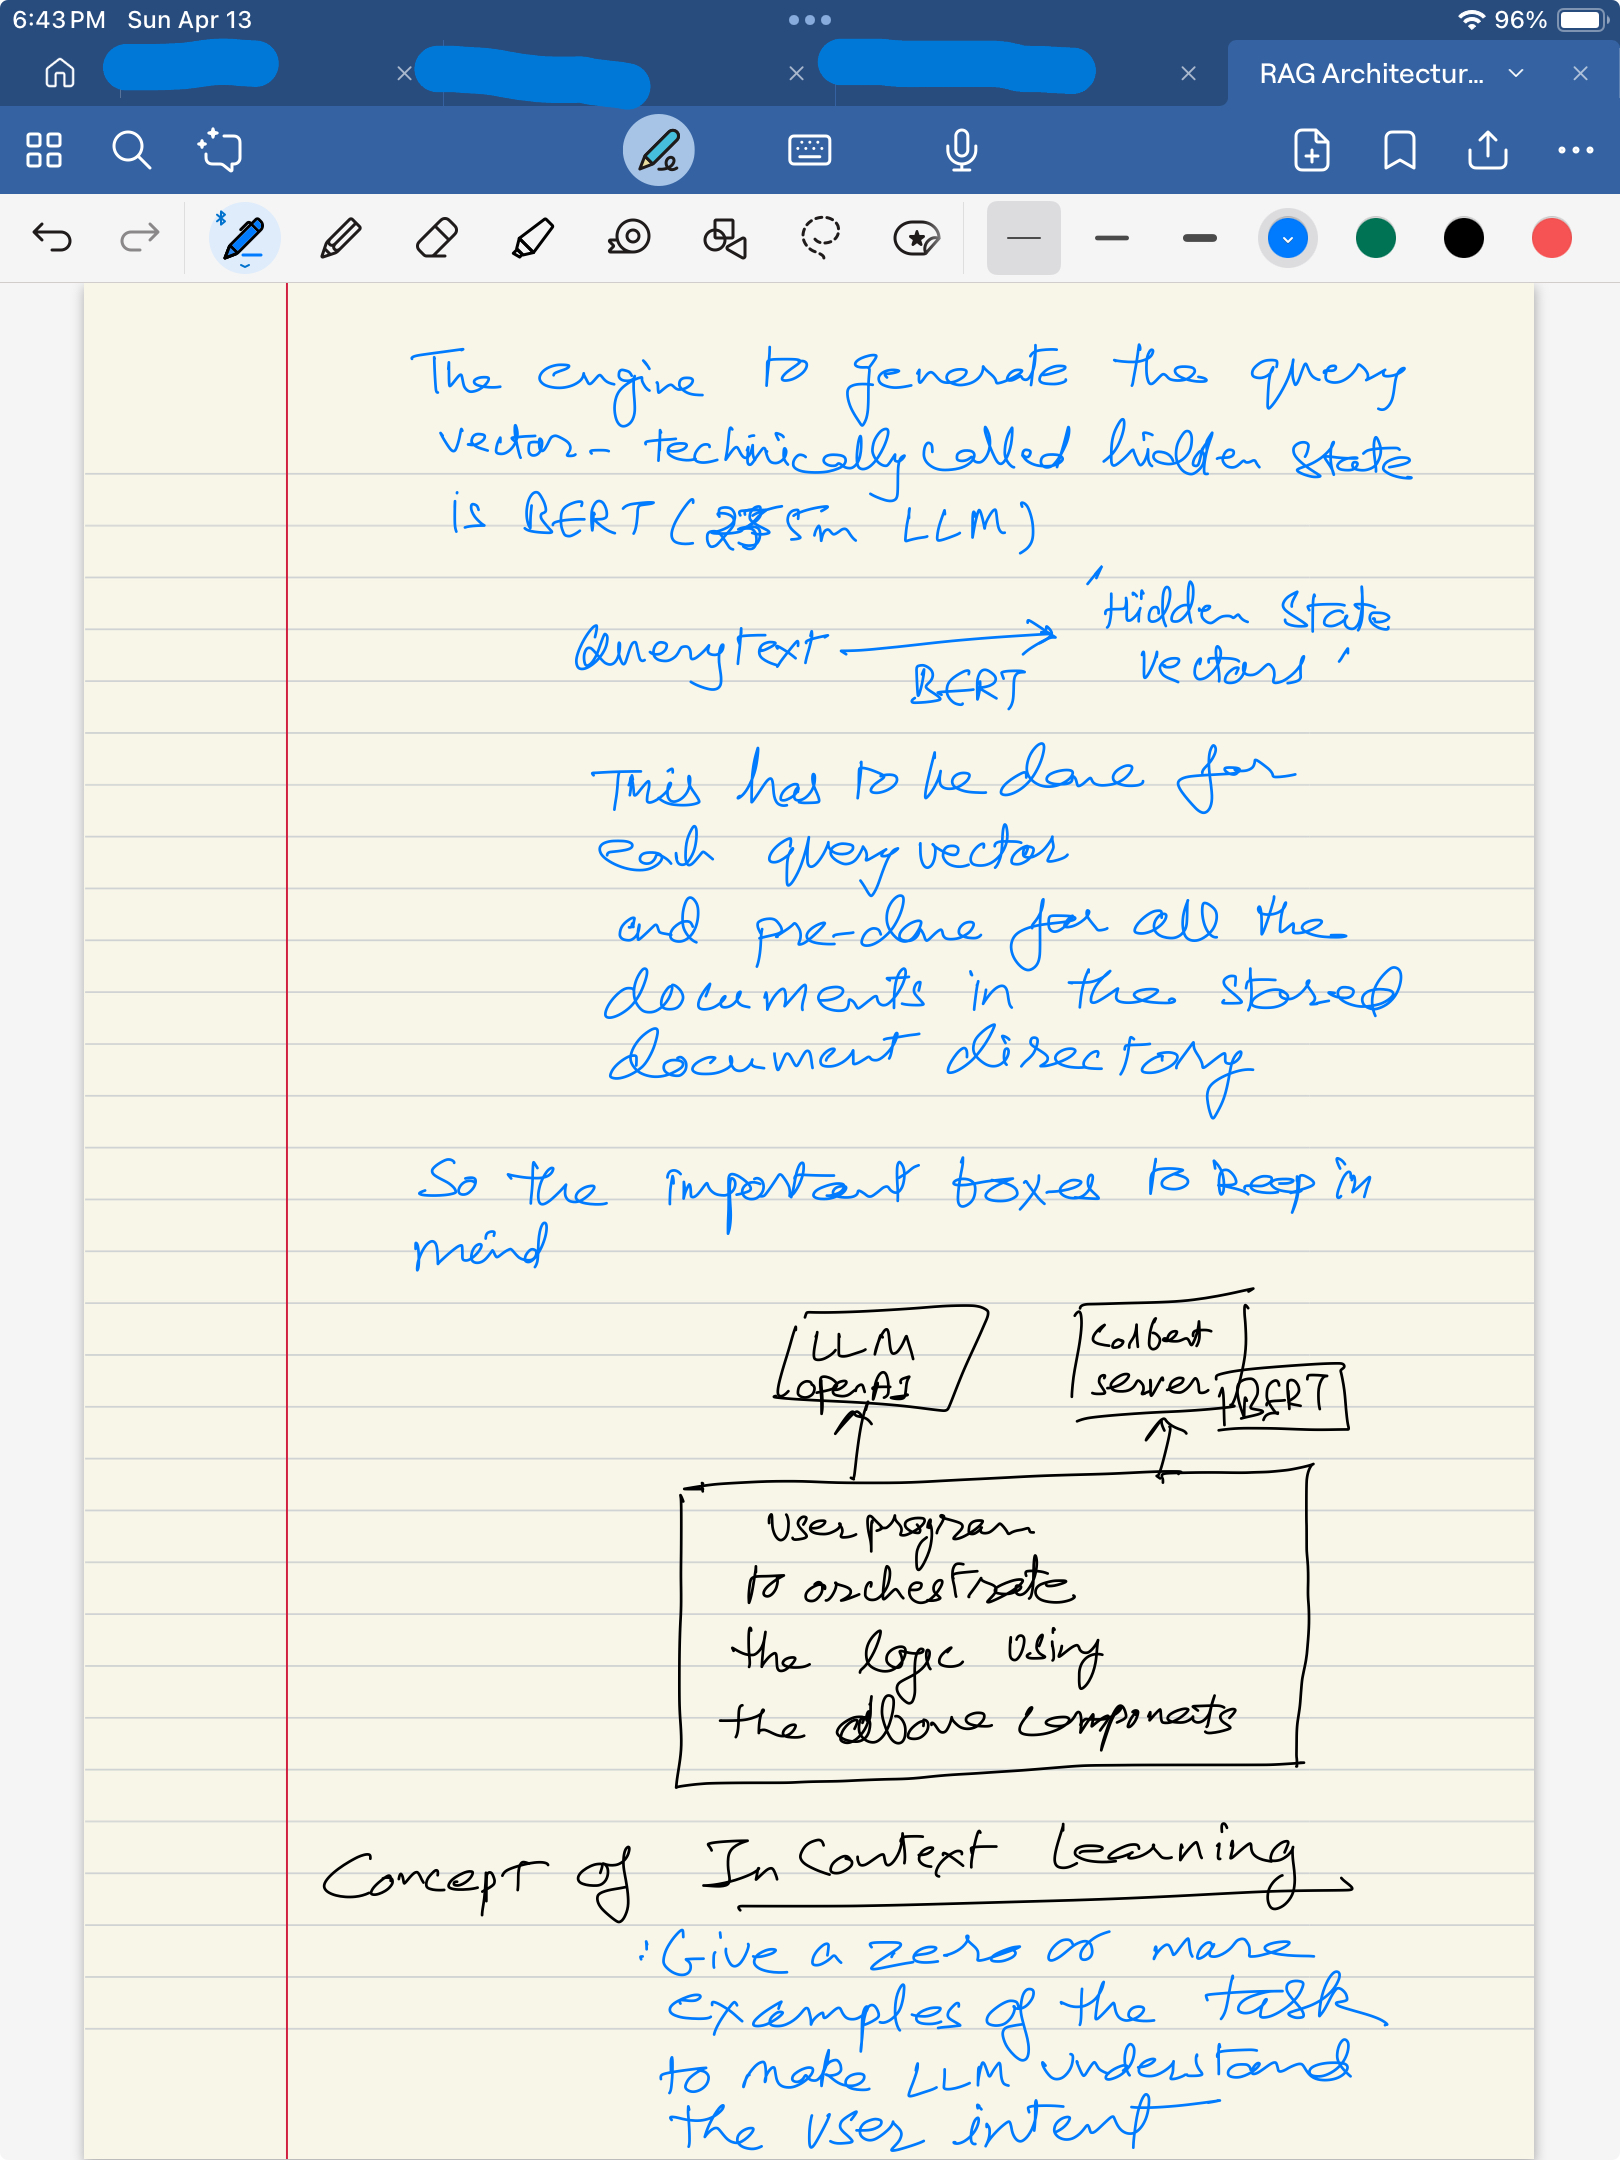 6:43 PM Sun Apr 13
96%
RAG Architectur...
The engine to generate the query
vector - technically called hidden state
is BERT ( 5m LLM)
'Hidden State
Query text
vectors'
BERT
This has to be done for
each query vector
and pre-done for all the
documents in the stored
document directory
So the important boxes to keep in
mind
LLM
openAI
Colbert
server
BERT
User program
to orchestrate
the logic using
the above components
Concept of In Context Learning
: Give a zero or more
examples of the task
to make LLM understand
the user intent